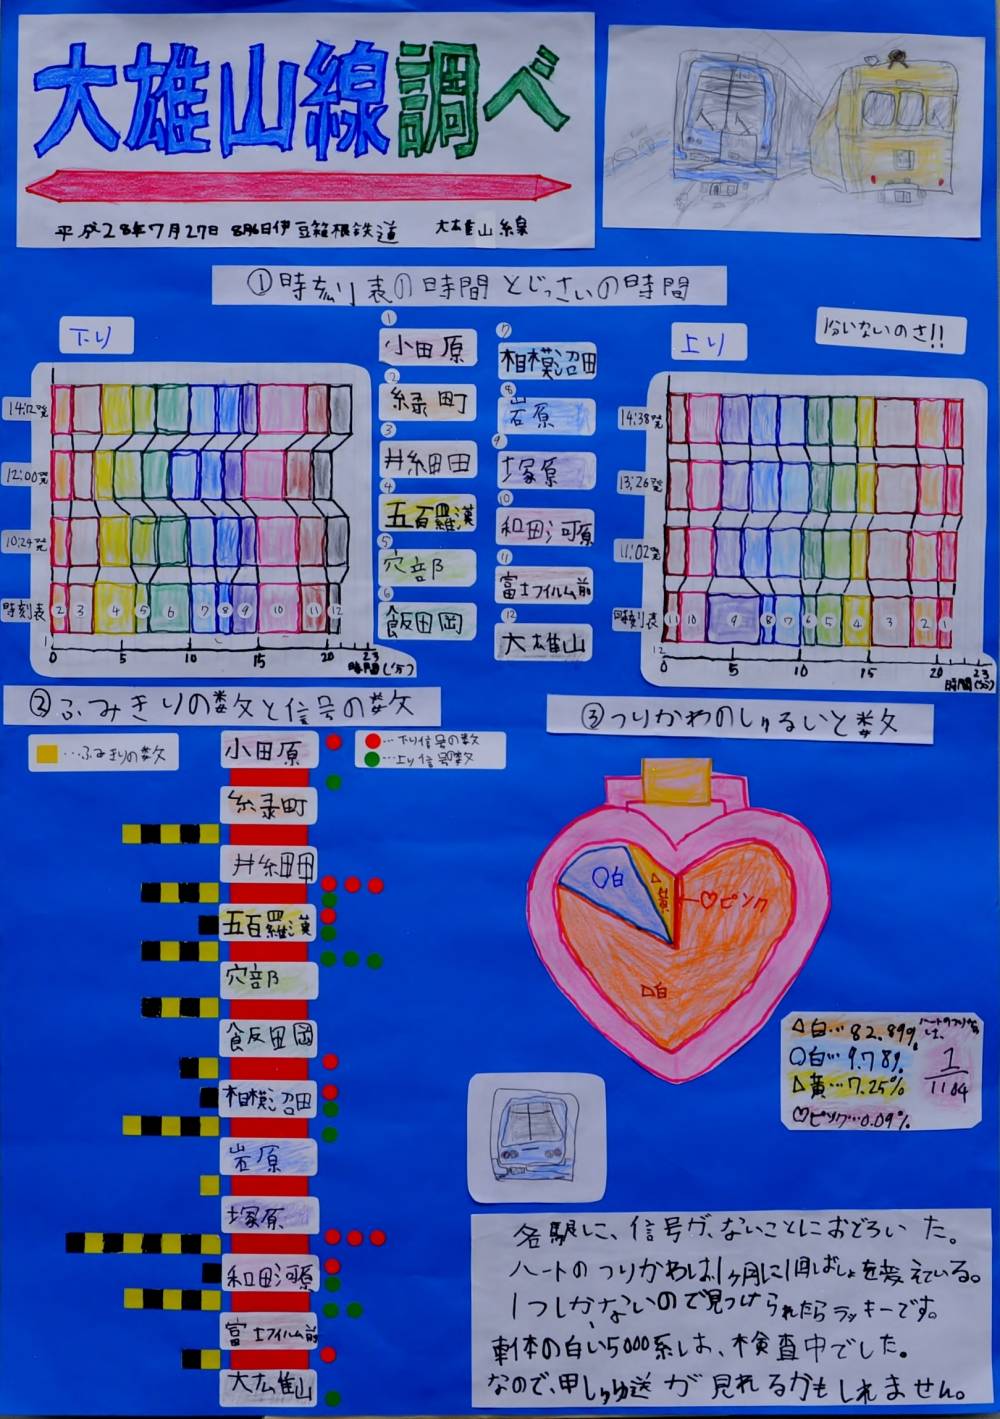 大雄山線調べ
平成28年7月27日 8月6日伊豆箱根鉄道 大雄山線
①時刻表の時間とじっさいの時間
下り
14:12発
12:00発
10:24発
時刻表
2 3 4 5 6 7 8 9 10 11 12
1
0 5 10 15 20 23
時間(分)
① 小田原
② 緑町
③ 井細田
④ 五百羅漢
⑤ 穴部
⑥ 飯田岡
⑦ 相模沼田
⑧ 岩原
⑨ 塚原
⑩ 和田河原
⑪ 富士フイルム前
⑫ 大雄山
上り
1分いないのさ!!
14:38発
13:26発
11:02発
時刻表
11 10 9 8 7 6 5 4 3 2 1
12
0 5 10 15 20 23
時間(分)
②ふみきりの数と信号の数
…ふみきりの数
…下り信号の数
…上り信号の数
小田原
緑町
井細田
五百羅漢
穴部
飯田岡
相模沼田
岩原
塚原
和田河原
富士フイルム前
大雄山
③つりかわのしゅるいと数
○白
△黄
♡ピンク
△白
△白…82.89%
○白…9.78%
△黄…7.25%
♡ピンク…0.09%
1
1104
各駅に、信号が、ないことにおどろいた。
ハートのつりかわは1ヶ月に1回ばしょを変えている。
1つしかないので見つけられたらラッキーです。
車体の白い5000系は、検査中でした。
なので、甲しゅゆ送が見れるかもしれません。